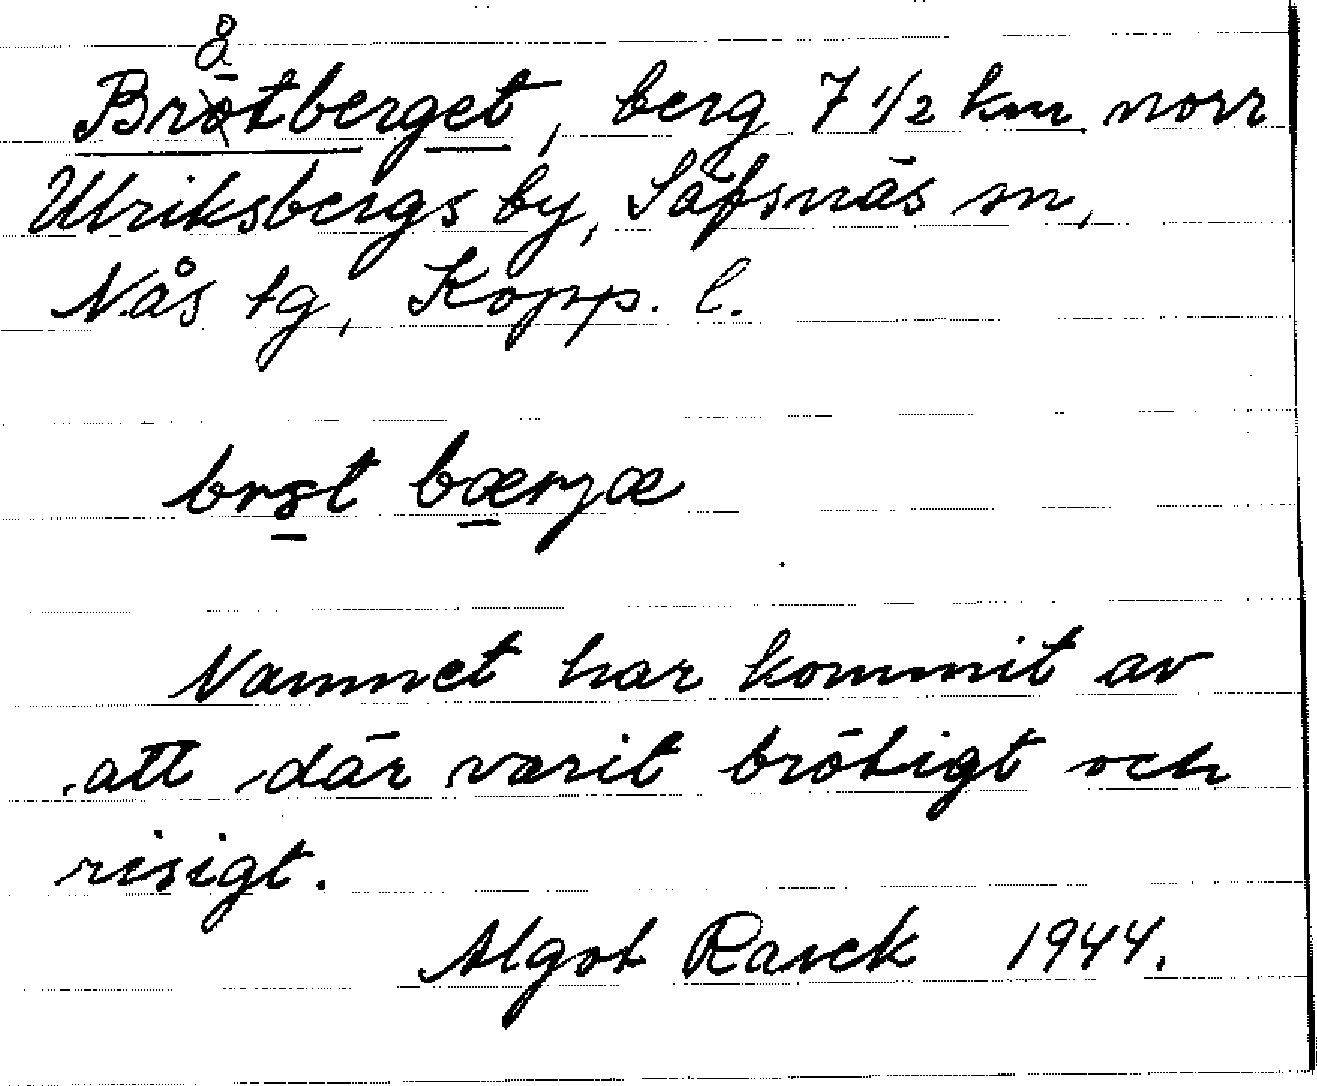 Brötberget, berg 7 1/2 km norr
Ulriksbergs by, Säfsnäs sn,
Nås tg, Kopp. l.
bærjæ
Namnet har kommit av
att där varit brötigt och
risigt.
Algot Rasck 1944.